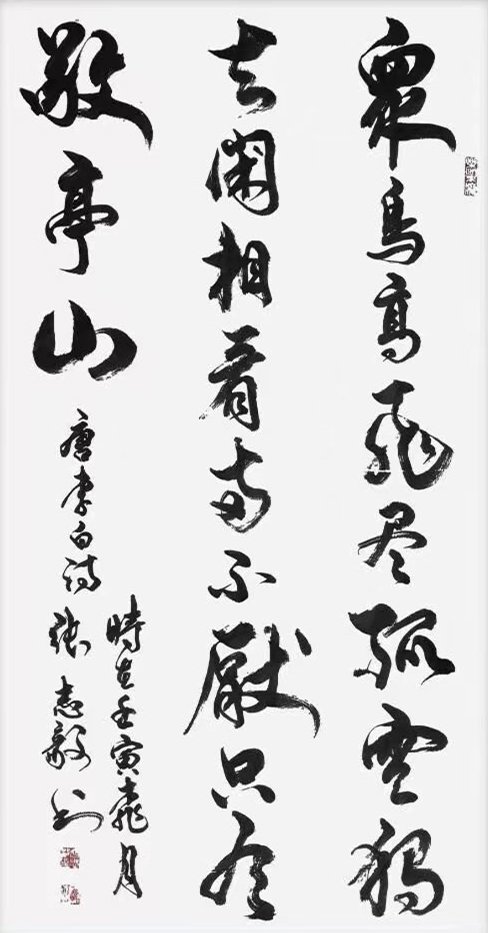 眾鳥高飛尽孤雲獨
去閑相看两不厭只有
敬亭山
唐李白詩
時在壬寅桃月
張志毅书